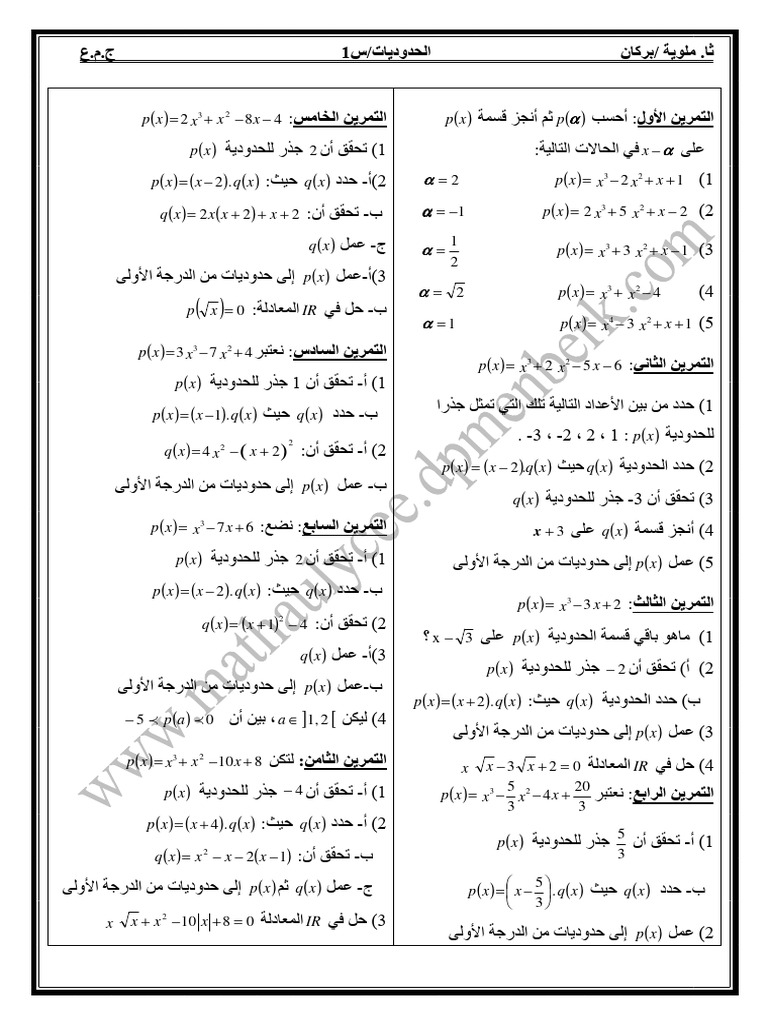 ثا. ملوية /بركان الحدوديات/س1 ج.م.ع
التمرين الأول: أحسب p(α) ثم أنجز قسمة p(x)
على x−α في الحالات التالية:
1) p(x)= x³−2x²+x+1 α=2
2) p(x)=2x³+5x²+x−2 α=−1
3) p(x)= x³+3x²+x−1 α=1/2
4) p(x)= x³+x²−4 α=√2
5) p(x)= x⁴−3x²+x+1 α=1
التمرين الثاني: p(x)= x³+2x²−5x−6
1) حدد من بين الأعداد التالية تلك التي تمثل جذرا
للحدودية p(x) : 1 ، 2 ، 2- ، 3- .
2) حدد الحدودية q(x) حيث p(x)=(x−2).q(x)
3) تحقق أن 3- جذر للحدودية q(x)
4) أنجز قسمة q(x) على x+3
5) عمل p(x) إلى حدوديات من الدرجة الأولى
التمرين الثالث: p(x)= x³−3x+2
1) ماهو باقي قسمة الحدودية p(x) على x−√3 ؟
2) أ) تحقق أن −2 جذر للحدودية p(x)
ب) حدد الحدودية q(x) حيث: p(x)=(x+2).q(x)
3) عمل p(x) إلى حدوديات من الدرجة الأولى
4) حل في IR المعادلة x√x−3√x+2=0
التمرين الرابع: نعتبر p(x)= x³−5/3x²−4x+20/3
1) أ- تحقق أن 5/3 جذر للحدودية p(x)
ب- حدد q(x) حيث p(x)=(x−5/3).q(x)
2) عمل p(x) إلى حدوديات من الدرجة الأولى
التمرين الخامس: p(x)=2x³+x²−8x−4
1) تحقق أن 2 جذر للحدودية p(x)
2)أ- حدد q(x) حيث: p(x)=(x−2).q(x)
ب- تحقق أن: q(x)=2x(x+2)+x+2
ج- عمل q(x)
3)أ-عمل p(x) إلى حدوديات من الدرجة الأولى
ب- حل في IR المعادلة: p(√x)=0
التمرين السادس: نعتبر p(x)=3x³−7x²+4
1) أ- تحقق أن 1 جذر للحدودية p(x)
ب- حدد q(x) حيث p(x)=(x−1).q(x)
2) أ- تحقق أن: q(x)=4x²−(x+2)²
ب- عمل p(x) إلى حدوديات من الدرجة الأولى
التمرين السابع: نضع: p(x)= x³−7x+6
1) أ- تحقق أن 2 جذر للحدودية p(x)
ب- حدد q(x) حيث: p(x)=(x−2).q(x)
2) تحقق أن: q(x)=(x+1)²−4
3)أ- عمل q(x)
ب-عمل p(x) إلى حدوديات من الدرجة الأولى
4) ليكن a∈]1,2[ ، بين أن −5≺p(a)≺0
التمرين الثامن: لتكن p(x)= x³+x²−10x+8
1) أ- تحقق أن −4 جذر للحدودية p(x)
2) أ- حدد q(x) حيث: p(x)=(x+4).q(x)
ب- تحقق أن: q(x)= x²−x−2(x−1)
ج- عمل q(x) ثم p(x) إلى حدوديات من الدرجة الأولى
3) حل في IR المعادلة x√x+x²−10|x|+8=0
www.mathaulycee.dpmenberk.com